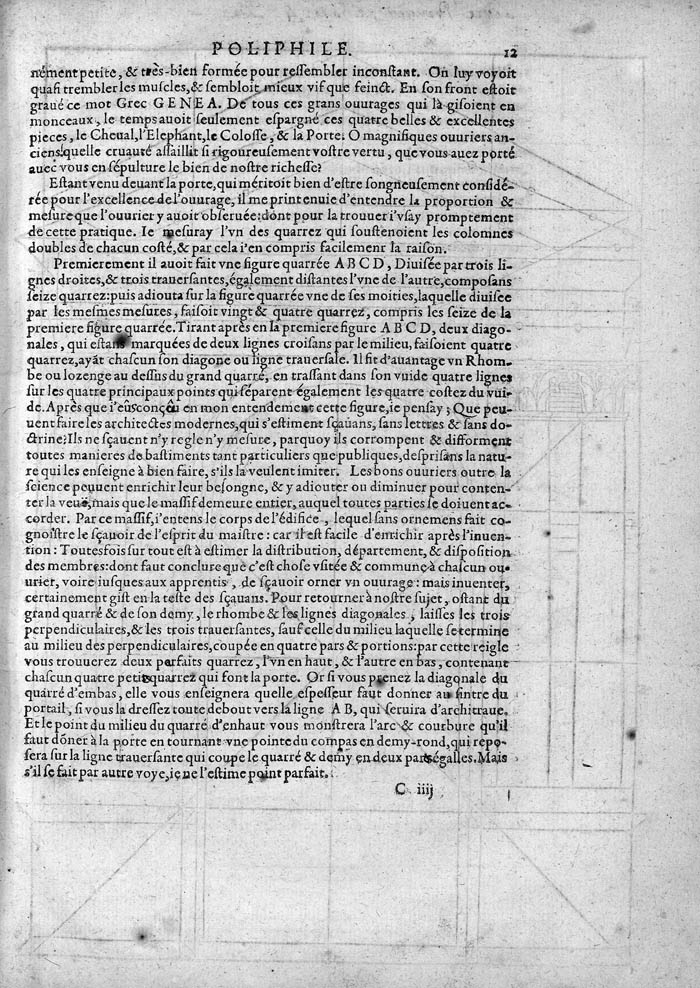 POLIPHILE. 12
nément petite, & très-bien formée pour ressembler inconstant. On luy voyoit
quasi trembler les muscles, & sembloit mieux vif que feinct. En son front estoit
graué ce mot Grec GENEA. De tous ces grans ouurages qui là gisoient en
monceaux, le temps auoit seulement espargné ces quatre belles & excellentes
pieces, le Cheual, l'Elephant, le Colosse, & la Porte. O magnifiques ouuriers an-
ciens! quelle cruauté assaillit si rigoureusement vostre vertu, que vous auez porté
auec vous en sépulture le bien de nostre richesse?
Estant venu deuant la porte, qui méritoit bien d'estre songneusement considé-
rée pour l'excellence de l'ouurage, il me print enuie d'entendre la proportion &
mesure que l'ouurier y auoit obseruée: dont pour la trouuer i'vsay promptement
de cette pratique. Ie mesuray l'vn des quarrez qui soustenoient les colomnes
doubles de chacun costé, & par cela i'en compris facilemenr la raison.
Premierement il auoit fait vne figure quarrée ABCD, Diuisée par trois li-
gnes droites, & trois trauersantes, également distantes l'vne de l'autre, composans
seize quarrez: puis adiouta sur la figure quarrée vne de ses moities, laquelle diuisée
par les mesmes mesures, faisoit vingt & quatre quarrez, compris les seize de la
premiere figure quarrée. Tirant après en la premiere figure ABCD, deux diago-
nales, qui estans marquées de deux lignes croisans par le milieu, faisoient quatre
quarrez, ayāt chascun son diagone ou ligne trauersale. Il fit d'auantage vn Rhom-
be ou lozenge au dessus du grand quarré, en trassant dans son vuide quatre lignes
sur les quatre principaux points qui séparent également les quatre costez du vui-
de. Après que i'eûs conçeu en mon entendement cette figure, ie pensay; Que peu-
uent faire les architectes modernes, qui s'estiment sçauans, sans lettres & sans do-
ctrine? Ils ne sçauent n'y regle n'y mesure, parquoy ils corrompent & difforment
toutes manieres de bastiments tant particuliers que publiques, desprisans la natu-
re qui les enseigne à bien faire, s'ils la veulent imiter. Les bons ouuriers outre la
science peuuent enrichir leur besongne, & y adiouter ou diminuer pour conten-
ter la veuë, mais que le massif demeure entier, auquel toutes parties se doiuent ac-
corder. Par ce massif, i'entens le corps de l'édifice, lequel sans ornemens fait co-
gnoistre le sçauoir de l'esprit du maistre: car il est facile d'enrichir après l'inuen-
tion: Toutesfois sur tout est à estimer la distribution, département, & disposition
des membres: dont faut conclure que c'est chose vsitée & commune à chascun ou-
urier, voire iusques aux apprentis, de sçauoir orner vn ouurage: mais inuenter,
certainement gist en la teste des sçauans. Pour retourner à nostre sujet, ostant du
grand quarré & de son demy, le rhombe & les lignes diagonales, laisses les trois
perpendiculaires, & les trois trauersantes, sauf celle du milieu laquelle se termine
au milieu des perpendiculaires, coupée en quatre pars & portions: par cette reigle
vous trouuerez deux parfaits quarrez, l'vn en haut, & l'autre en bas, contenant
chascun quatre petits quarrez qui font la porte. Or si vous prenez la diagonale du
quarré d'embas, elle vous enseignera quelle espesseur faut donner au sintre du
portail, si vous la dressez toute debout vers la ligne AB, qui seruira d'architraue.
Et le point du milieu du quarré d'enhaut vous monstrera l'arc & courbure qu'il
faut dōner à la porte en tournant vne pointe du compas en demy-rond, qui repo-
sera sur la ligne trauersante qui coupe le quarré & demy en deux pars égalles. Mais
s'il se fait par autre voye, ie ne l'estime point parfait.
C iiij